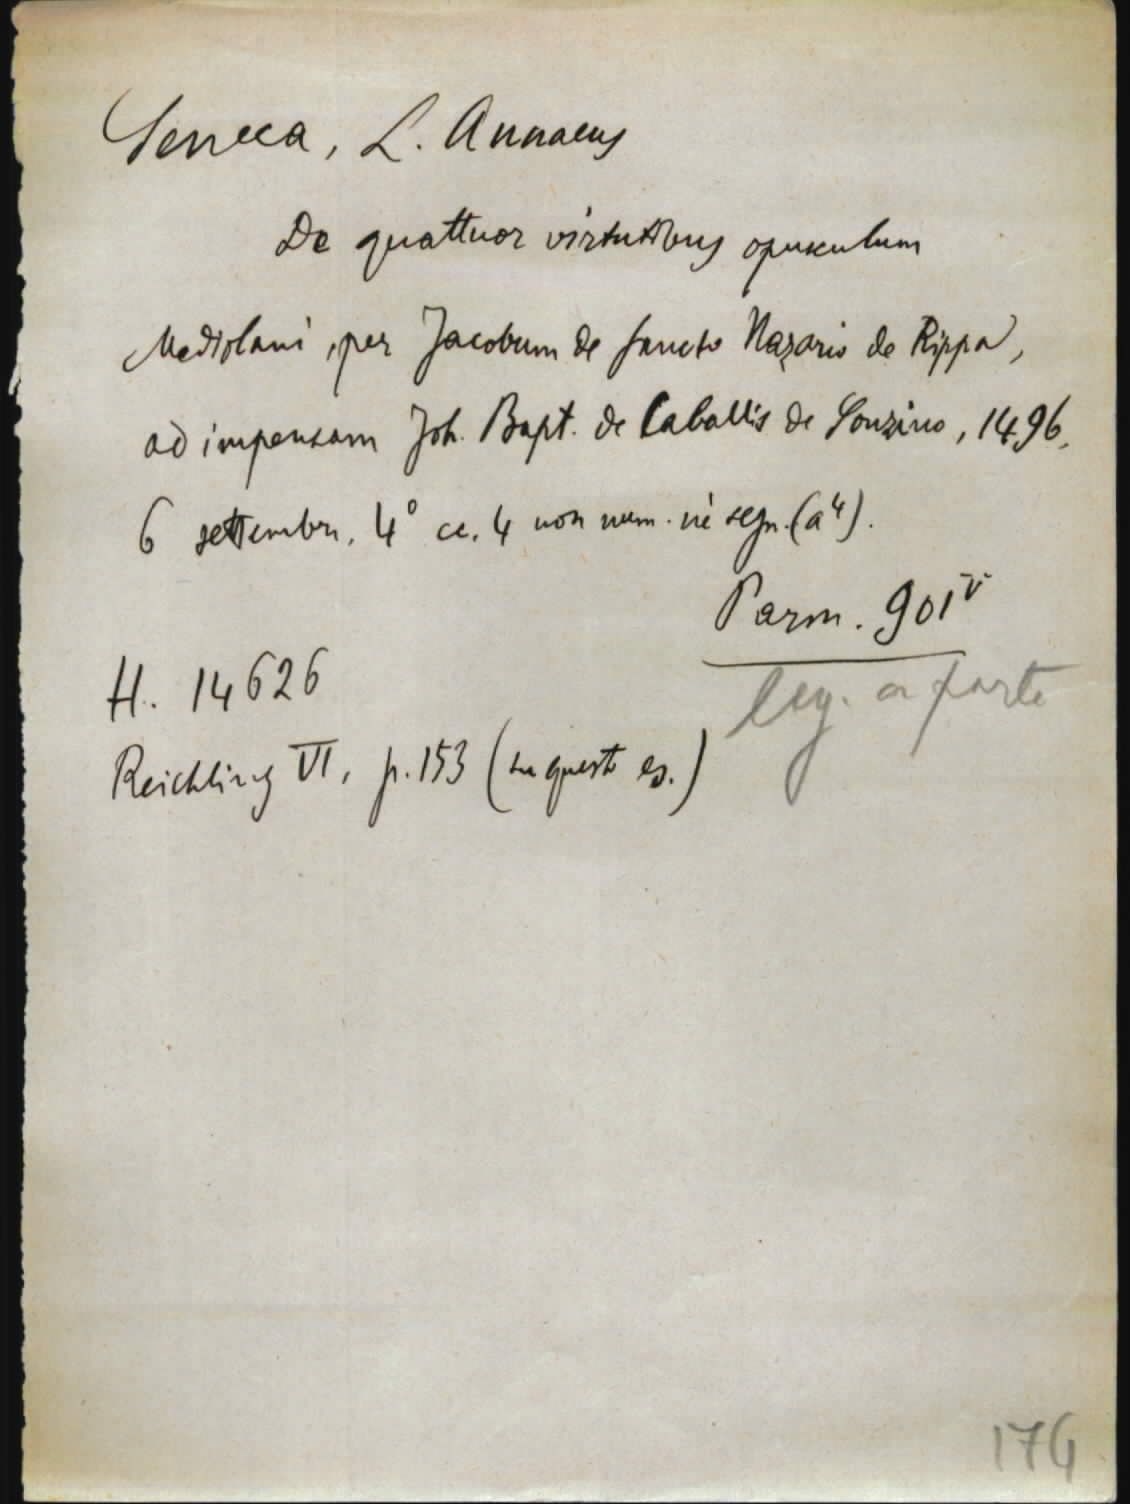 Seneca, L. Annaeus
De quattuor virtutibus opusculum
Mediolani, per Jacobum de Sancto Nazario de Rippa,
ad impensam Joh. Bapt. de Caballis de Sonzino, 1496,
6 settembre. 4° cc. 4 non num. nè segn. (a⁴).
Parm. 901ᵛ
leg. a parte
H. 14626
Reichling VI, p. 153 (su questo es.)
174